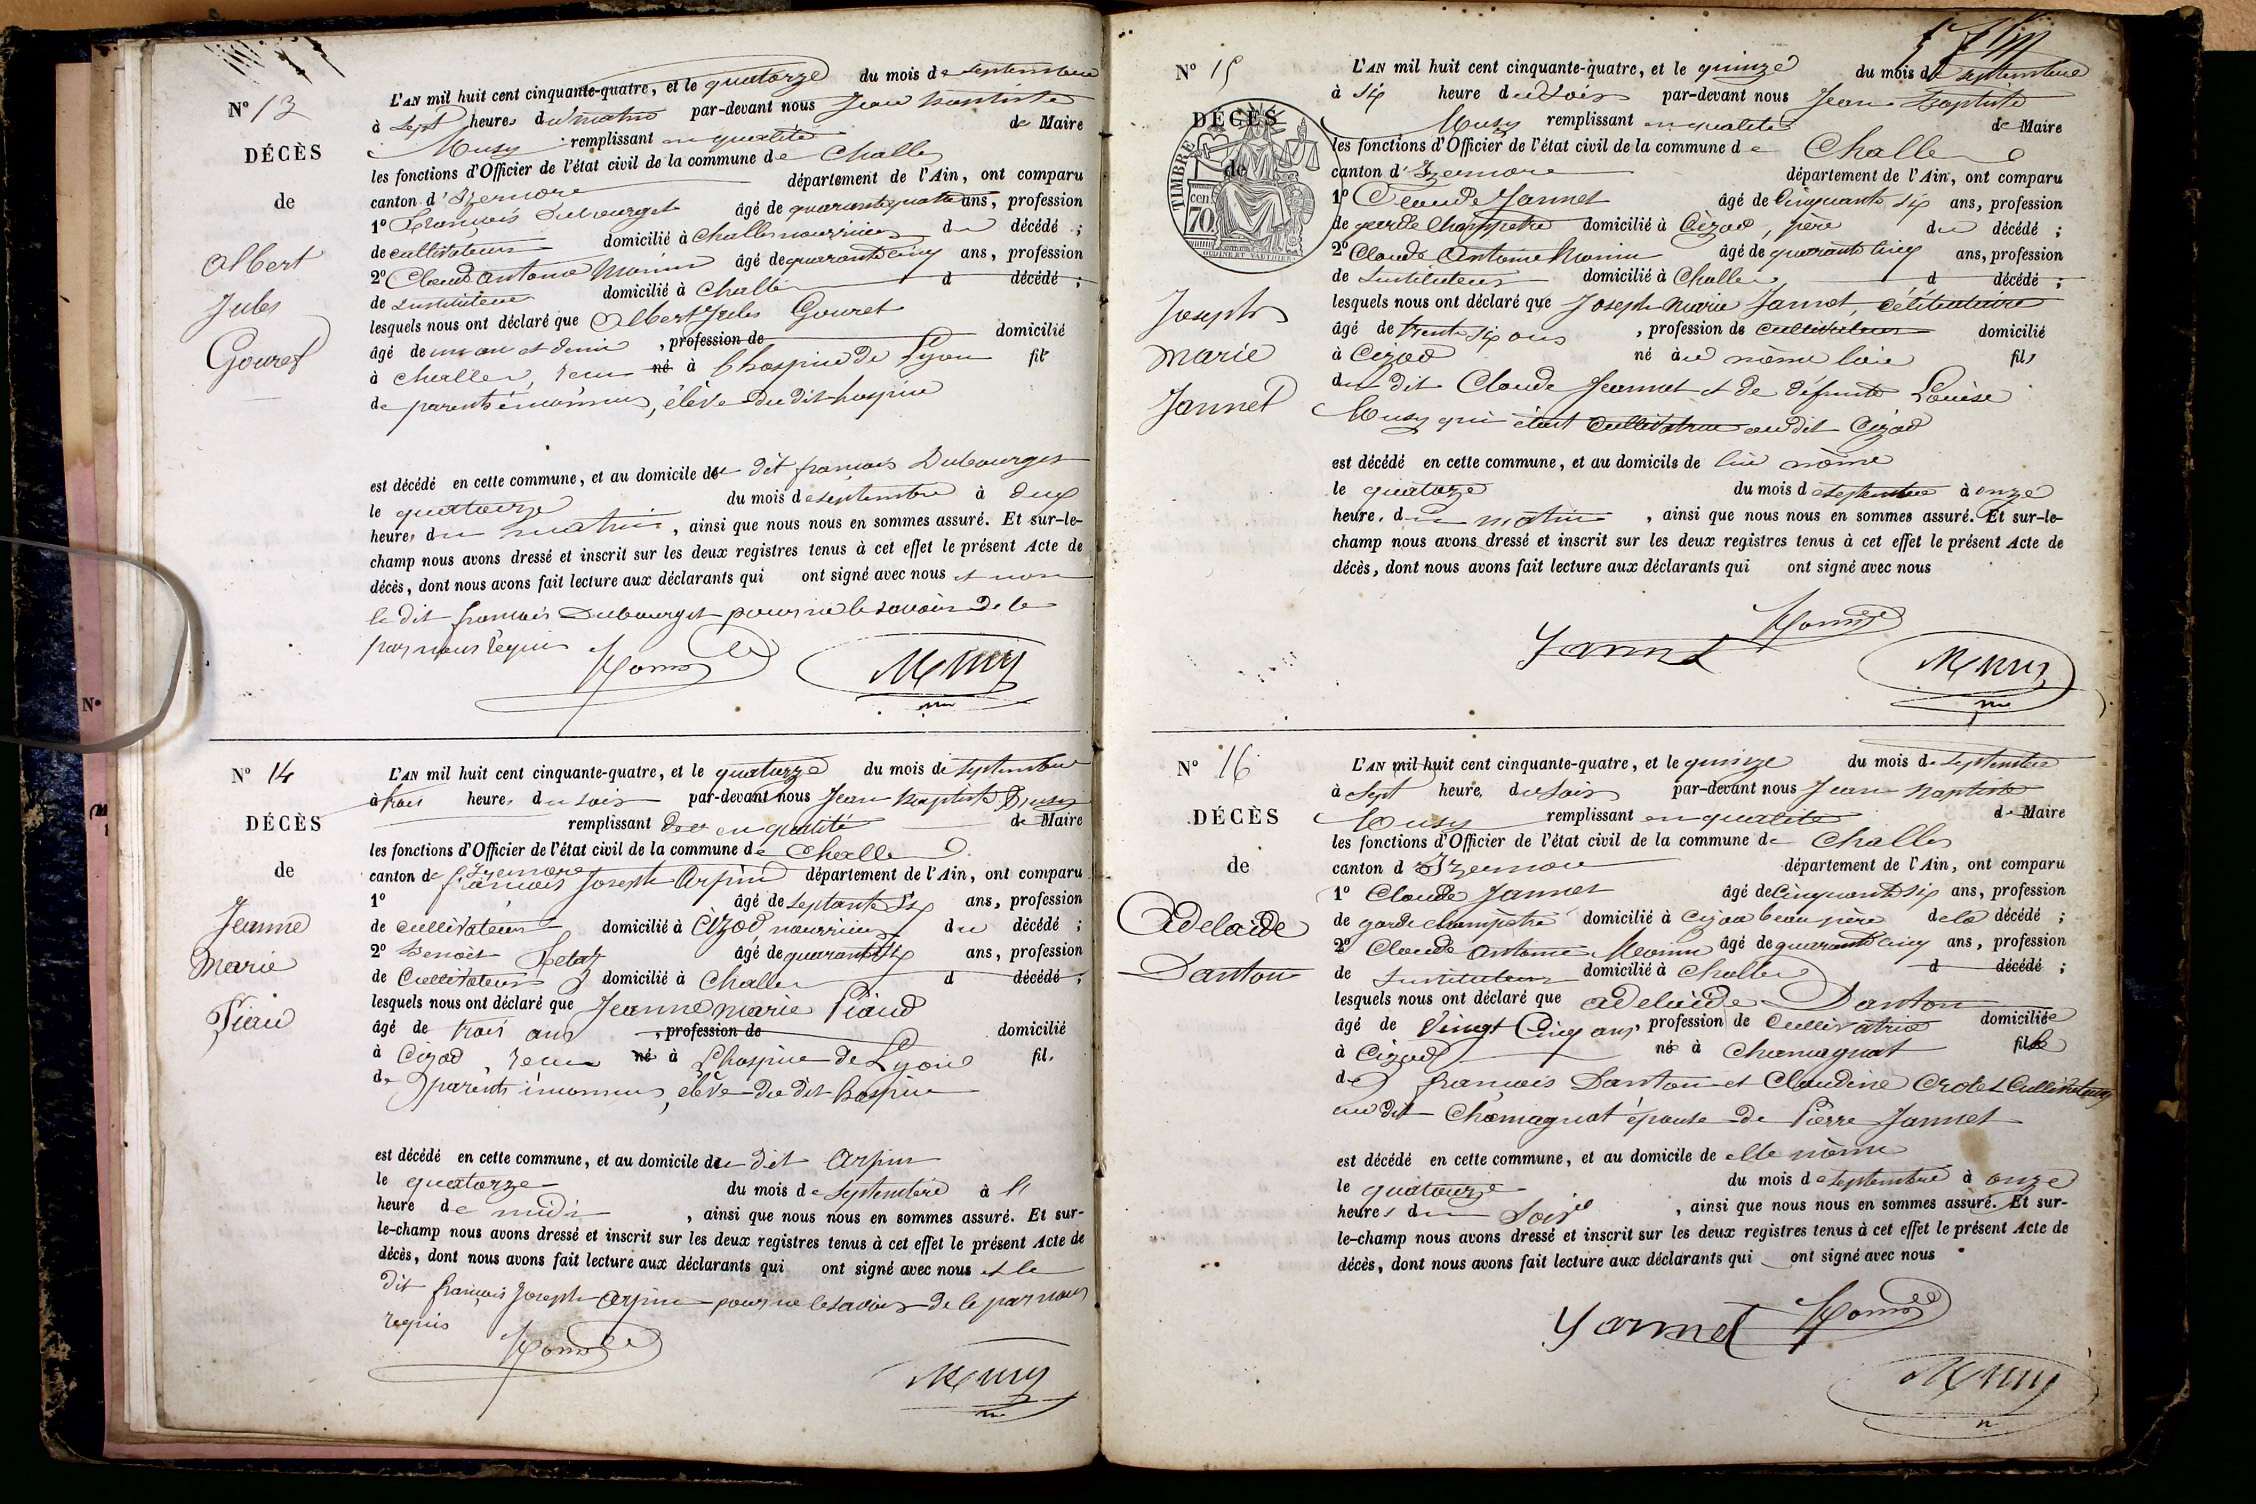 N° 13
DÉCÈS
de
Albert
Jules
Gouret
L'AN mil huit cent cinquante-quatre, et le quatorze du mois de septembre
à sept heures du matin par-devant nous Jean Baptiste
Musy remplissant en qualité de Maire
les fonctions d'Officier de l'état civil de la commune de Challes
canton d'Izernore département de l'Ain, ont comparu
1° François Dubourget âgé de quarante quatre ans, profession
de cultivateur domicilié à Challes nourricier du décédé ;
2° Claude Antoine âgé de quarante cinq ans, profession
de Instituteur domicilié à Challes d décédé ;
lesquels nous ont déclaré que Albert Jules Gouret
âgé de un an et demi , profession de domicilié
à Challes, venu né à l'hospice de Lyon fils
de parents inconnus, élève du dit hospice
est décédé en cette commune, et au domicile du dit françois Dubourget
le quatorze du mois de septembre à deux
heures du matin , ainsi que nous nous en sommes assuré. Et sur-le-
champ nous avons dressé et inscrit sur les deux registres tenus à cet effet le présent Acte de
décès, dont nous avons fait lecture aux déclarants qui ont signé avec nous et non
le dit françois Dubourget pour ne le savoir de ce
par nous requis
Musy
N° 14
DÉCÈS
de
Jeanne
Marie
Piau
L'AN mil huit cent cinquante-quatre, et le quatorze du mois de septembre
à trois heures du soir par-devant nous Jean Baptiste Musy
remplissant en qualité de Maire
les fonctions d'Officier de l'état civil de la commune de Challes
canton de Izernore françois Joseph Arpin département de l'Ain, ont comparu
1° âgé de septante six ans, profession
de cultivateur domicilié à Cizod nourricier du décédé ;
2° Benoit âgé de quarante six ans, profession
de Cultivateur domicilié à Challes d décédé ;
lesquels nous ont déclaré que Jeanne marie Piaud
âgé de trois ans , profession de domicilié
à Cizod venu né à l'hospice de Lyon fil.
de parents inconnus, élève du dit hospice
est décédé en cette commune, et au domicile du dit Arpin
le quatorze du mois de septembre à
heure de midi , ainsi que nous nous en sommes assuré. Et sur-
le-champ nous avons dressé et inscrit sur les deux registres tenus à cet effet le présent Acte de
décès, dont nous avons fait lecture aux déclarants qui ont signé avec nous et le
dit françois Joseph Arpin pour ne le savoir de ce par nous
requis
Musy
N° 15
DÉCÈS
de
TIMBRE
cen
70
Joseph
marie
Jannet
L'AN mil huit cent cinquante-quatre, et le quinze du mois de septembre
à six heure du soir par-devant nous Jean Baptiste
Musy remplissant en qualité de Maire
les fonctions d'Officier de l'état civil de la commune de Challes
canton d'Izernore département de l'Ain, ont comparu
1° Claude Jannet âgé de Cinquante six ans, profession
de garde Champêtre domicilié à Cizod, père du décédé ;
2° Claude Antoine âgé de quarante cinq ans, profession
de Instituteur domicilié à Challes d décédé ;
lesquels nous ont déclaré que Joseph marie Jannet, célibataire
âgé de trente six ans , profession de cultivateur domicilié
à Cizod né au même lieu fils
du dit Claude Jeannet et de défunte Louise
Musy qui était Cultivatrice audit Cizod
est décédé en cette commune, et au domicile de lui même
le quatorze du mois de septembre à onze
heure, du matin , ainsi que nous nous en sommes assuré. Et sur-le-
champ nous avons dressé et inscrit sur les deux registres tenus à cet effet le présent Acte de
décès, dont nous avons fait lecture aux déclarants qui ont signé avec nous
Jannet
Musy
N° 16
DÉCÈS
de
Adelaide
Danton
L'AN mil huit cent cinquante-quatre, et le quinze du mois de septembre
à sept heure, du soir par-devant nous Jean Baptiste
Musy remplissant en qualité de Maire
les fonctions d'Officier de l'état civil de la commune de Challes
canton d'Izernore département de l'Ain, ont comparu
1° Claude Jannet âgé de Cinquante six ans, profession
de garde champêtre domicilié à Cizod beau père de la décédé ;
2° Claude Antoine âgé de quarante cinq ans, profession
de Instituteur domicilié à Challes d décédé ;
lesquels nous ont déclaré que adelaide Danton
âgé de Vingt Cinq ans, profession de Cultivatrice domiciliée
à Cizod né à Chamagnat fille
de françois Danton et Claudine Crolet Cultivateurs
au dit Chamagnat épouse de Pierre Jannet
est décédé en cette commune, et au domicile de elle même
le quatorze du mois de septembre à onze
heures du soir , ainsi que nous nous en sommes assuré. Et sur-
le-champ nous avons dressé et inscrit sur les deux registres tenus à cet effet le présent Acte de
décès, dont nous avons fait lecture aux déclarants qui ont signé avec nous
Jannet
Musy